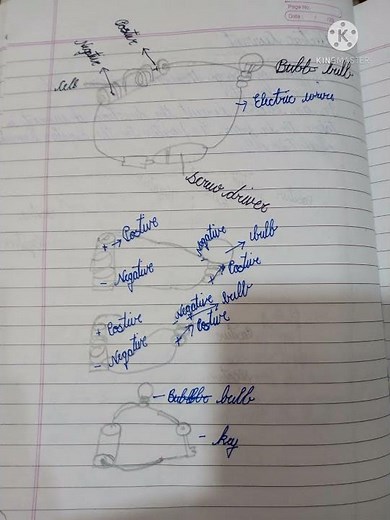 Page No.
Date
K
KINEMASTER
Postive
Negative
Bubb bulb
Electric wires
Screw driver
+ → Postive
Negative
bulb
- Negative
+ Postive
Negative
bulb
+ Postive
+ Postive
- Negative
bulb
- key